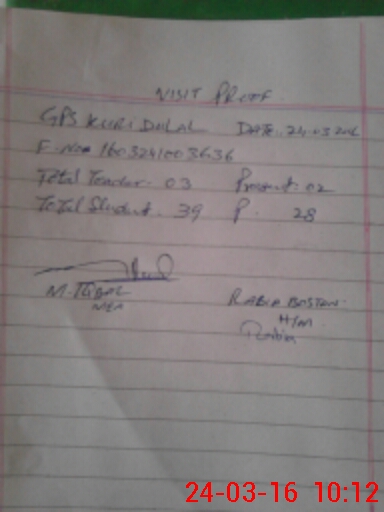 VISIT PROOF
GPS KURI DULAL DATE. 24.03.2016
F. No# 1603241003636
Total Teacher. 03 Present. 02
Total Student. 39 P. 28
M. IQBAL
MEA
RABIA BOSTAN
H/M
Rabia
24-03-16 10:12